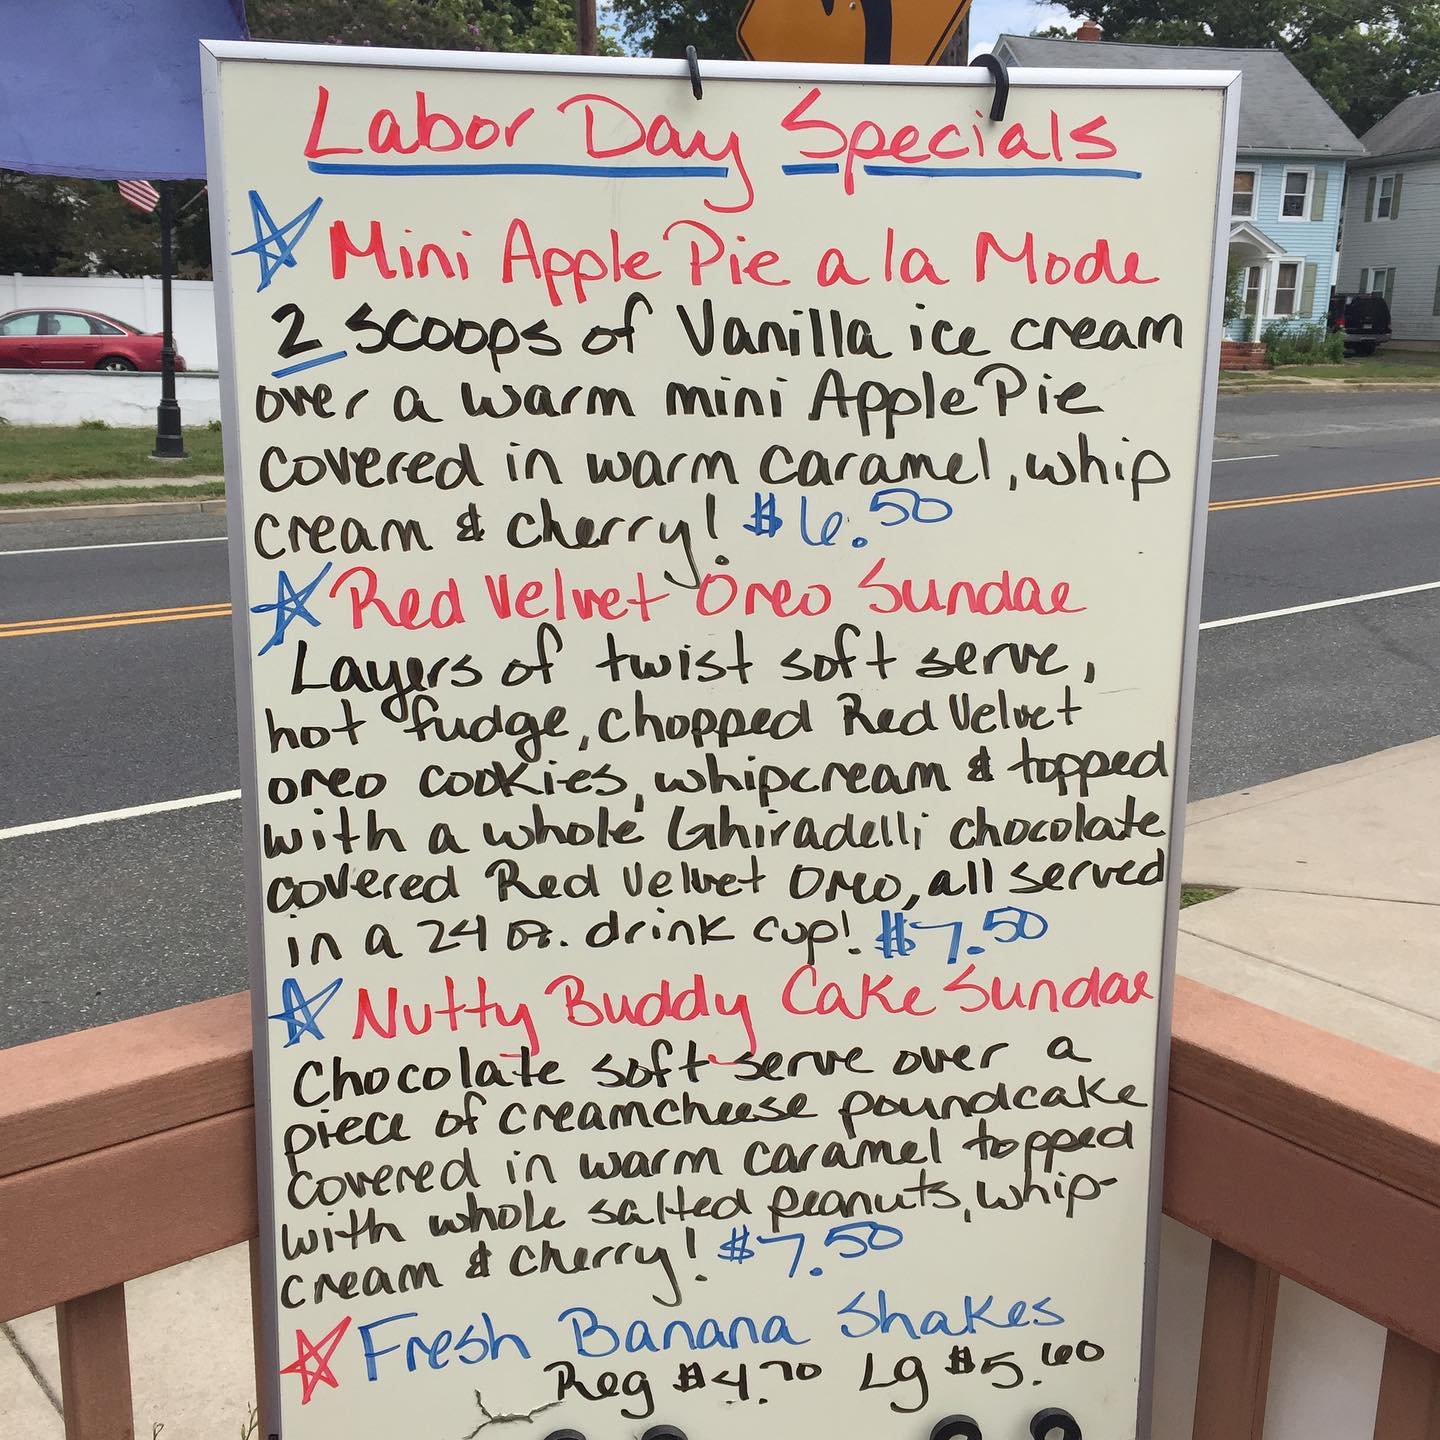 Labor Day Specials
Mini Apple Pie a la Mode
2 scoops of Vanilla ice cream
over a warm mini Apple Pie
covered in warm caramel, whip
cream & cherry! $6.50
Red Velvet Oreo Sundae
Layers of twist soft serve,
hot fudge, chopped Red Velvet
oreo cookies, whipcream & topped
with a whole Ghiradelli chocolate
covered Red Velvet Oreo, all served
in a 24 oz. drink cup! $7.50
Nutty Buddy Cake Sundae
Chocolate soft serve over a
piece of creamcheese poundcake
covered in warm caramel topped
with whole salted peanuts, whip-
cream & cherry! $7.50
Fresh Banana Shakes
Reg $4.70 Lg $5.60